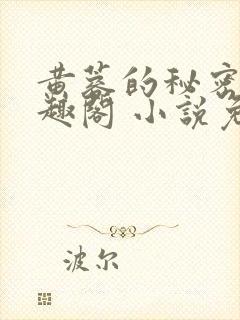 黄蓉的秘密
趣阁 小说免
波尔